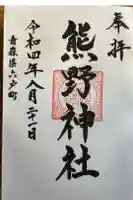 奉拝
熊野神社
令和四年八月二十一日
青森県六戸町